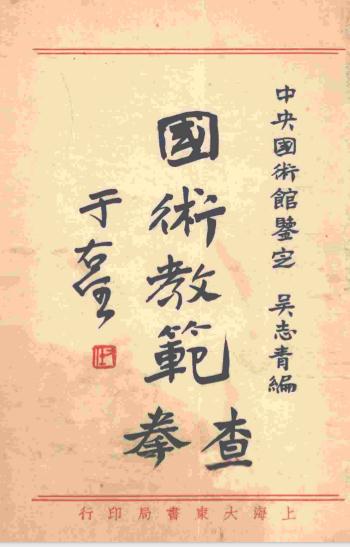 中央國術館鑒定 吳志青編
國術教範
查拳
于右任
上海大東書局印行